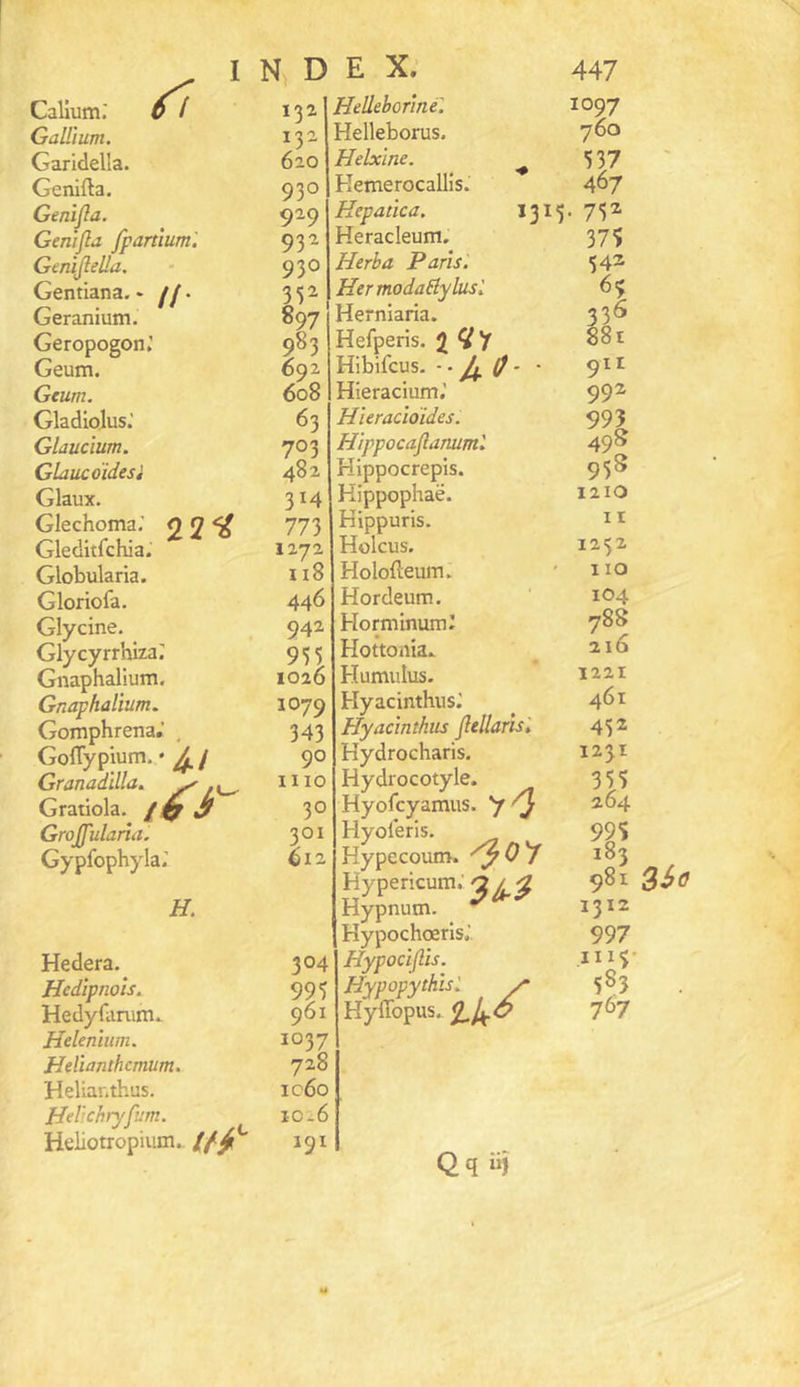 INDEX. 447
Calium. 61 132
Gallium. 132
Garidella. 620
Geniſta. 930
Geniſta. 929
Geniſta ſpartium. 932
Geniſtella. 930
Gentiana. - 11. 352
Geranium. 897
Geropogon. 983
Geum. 692
Geum. 608
Gladiolus. 63
Glaucium. 703
Glaucoïdes. 482
Glaux. 314
Glechoma. 773
Gleditſchia. 1272
Globularia. 118
Glorioſa. 446
Glycine. 942
Glycyrrhiza. 955
Gnaphalium. 1026
Gnaphalium. 1079
Gomphrena. 343
Goſſypium. 41 90
Granadilla. 1110
Gratiola. 30
Groſſularia. 301
Gypſophyla. 612
H.
Hedera. 304
Hedipnois. 995
Hedyſarum. 961
Helenium. 1037
Helianthemum. 728
Helianthus. 1060
Helichryſum. 10-6
Heliotropium. 191
Helleborine. 1097
Helleborus. 760
Helxine. 537
Hemerocallis. 467
Hepatica. 1315. 752
Heracleum. 375
Herba Paris. 542
Hermodactylus. 65
Herniaria. 336
Heſperis. 881
Hibiſcus. -- 40 - - 911
Hieracium. 992
Hieracioïdes. 993
Hippocaſtanum. 498
Hippocrepis. 958
Hippophaë. 1210
Hippuris. 11
Holcus. 1252
Holoſteum. 110
Hordeum. 104
Horminum. 788
Hottonia. 216
Humulus. 1221
Hyacinthus. 461
Hyacinthus ſtellaris. 452
Hydrocharis. 1231
Hydrocotyle. 355
Hyoſcyamus. 264
Hyoſeris. 995
Hypecoum. 307 183
Hypericum. 343 981 350
Hypnum. 1312
Hypochœris. 997
Hypociſtis. 1115
Hypopythis. 583
Hyſſopus. 246 767
Qq iij